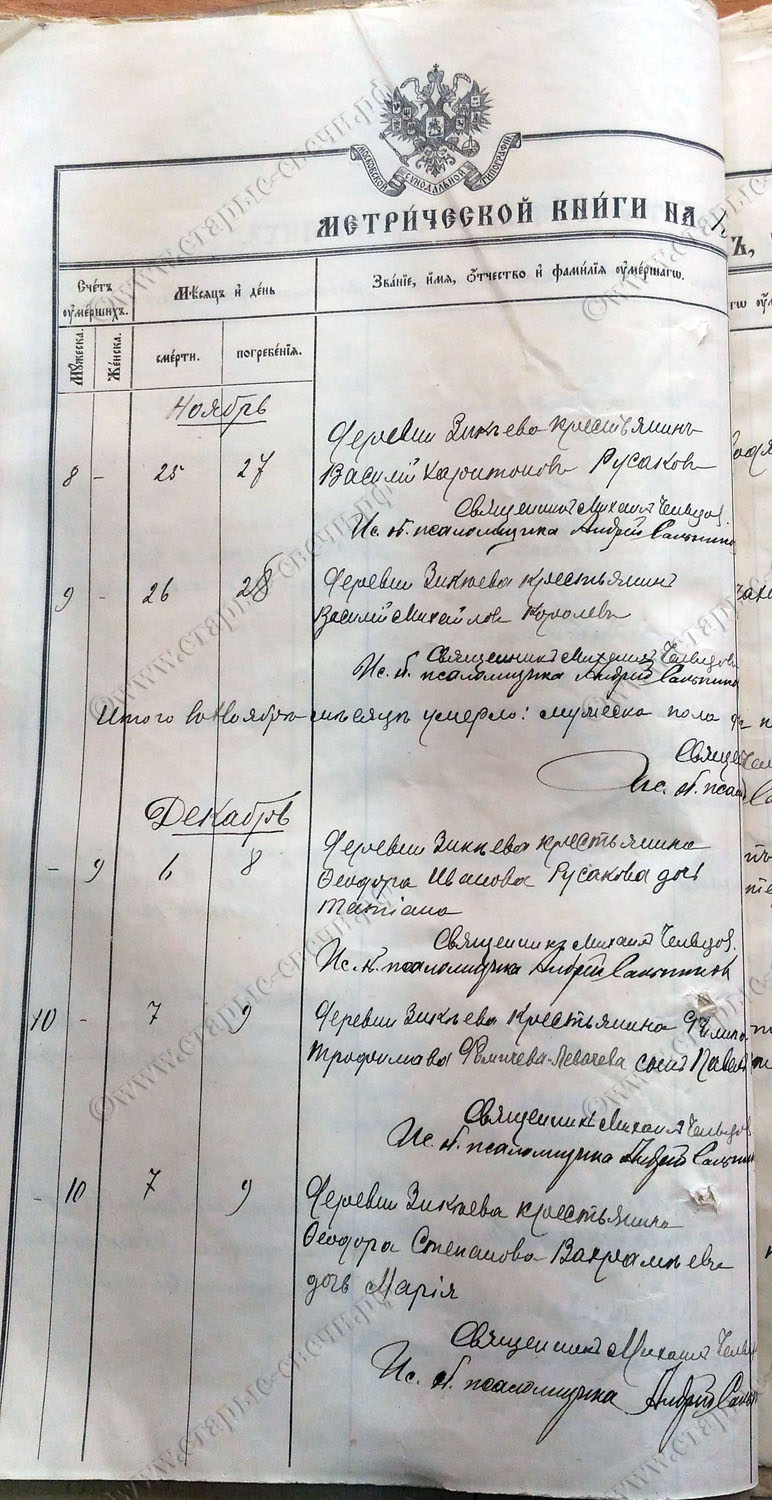 МОСКОВСКОЙ СѴНОДАЛЬНОЙ ТИПОГРАФІИ
МЕТРИ́ЧЕСКОЙ КНИ́ГИ НА
Сче́тъ оу҆ме́ршихъ.
Мѣ́сяцъ и де́нь
Зва́ніе, и́мя, о́тчество и фами́лія оу҆ме́ршагѡ.
Му́жеска.
Же́нска.
сме́рти.
погребе́нія.
Ноябрь
Деревни Зикѣева крестьянинъ
8 - 25 27 Василій Харитоновъ Русаковъ
Священникъ Михаилъ Чельцов.
Ис. д. псаломщика Андрей
Деревни Зикѣева крестьянинъ
9 - 26 28
Василій Михайловъ Королевъ
Священникъ Михаилъ Чельцовъ
Ис. д. псаломщика Андрей
Итого въ Ноябрѣ мѣсяцѣ умерло: мужеска пола
Ис. д. псал
Декабрь
Деревни Зикѣева крестьянина
- 9 6 8 Ѳеодора Иванова Русакова дочь
Татіана
Священникъ Михаилъ Чельцов.
Ис. д. псаломщика Андрей
10 - 7 9 Деревни Зикѣева крестьянина
Трофимова сынъ Павелъ
Священникъ Михаилъ Чельцов
Ис. д. псаломщика Андрей
- 10 7 9 Деревни Зикѣева крестьянина
Ѳеодора Степанова
дочь Марія
Священникъ Михаилъ Чельц
Ис. д. псаломщика Андрей
©www.старые-свечи.рф